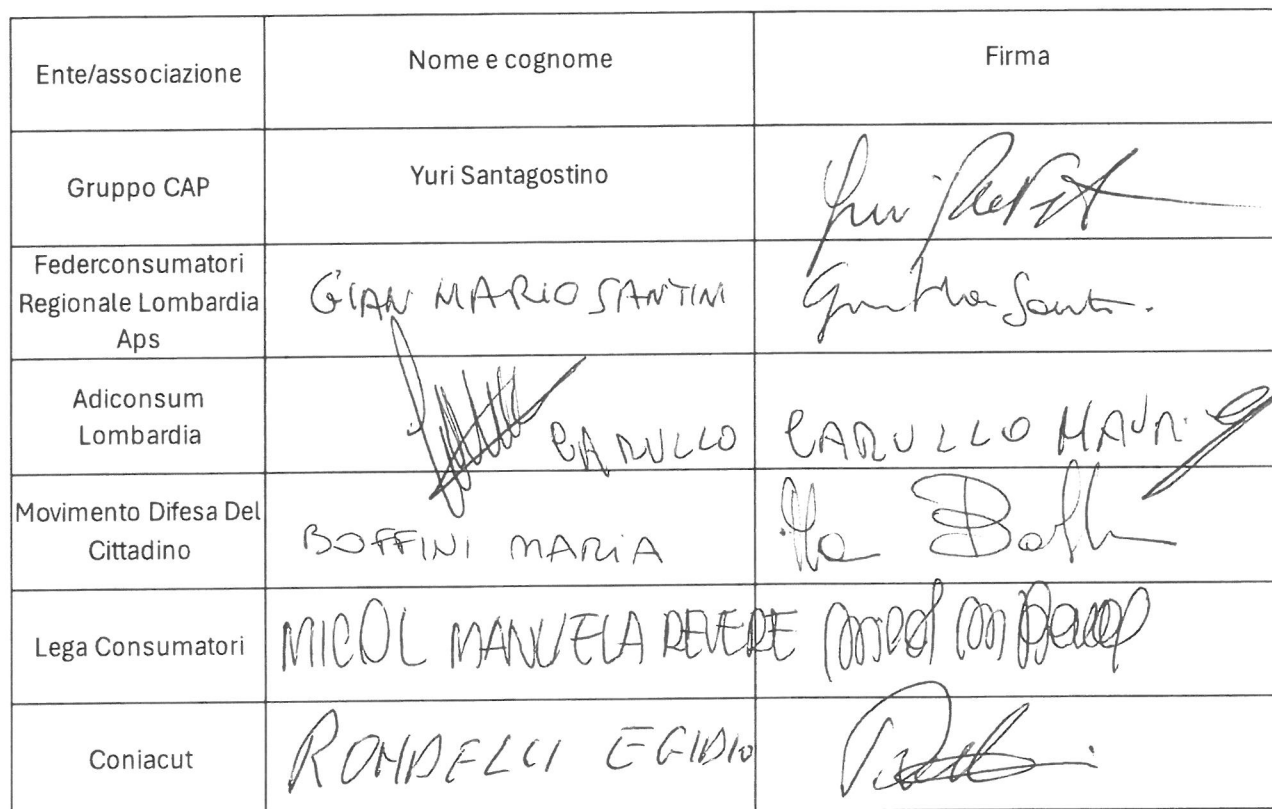 Ente/associazione
Nome e cognome
Firma
Gruppo CAP
Yuri Santagostino
Federconsumatori
Regionale Lombardia
Aps
GIAN MARIO SANTINI
Adiconsum
Lombardia
CARULLO
CARULLO MAURI
Movimento Difesa Del
Cittadino
BOFFINI MARIA
Lega Consumatori
MICOL MANUELA REVERE
Coniacut
RONDELLI EGIDIO